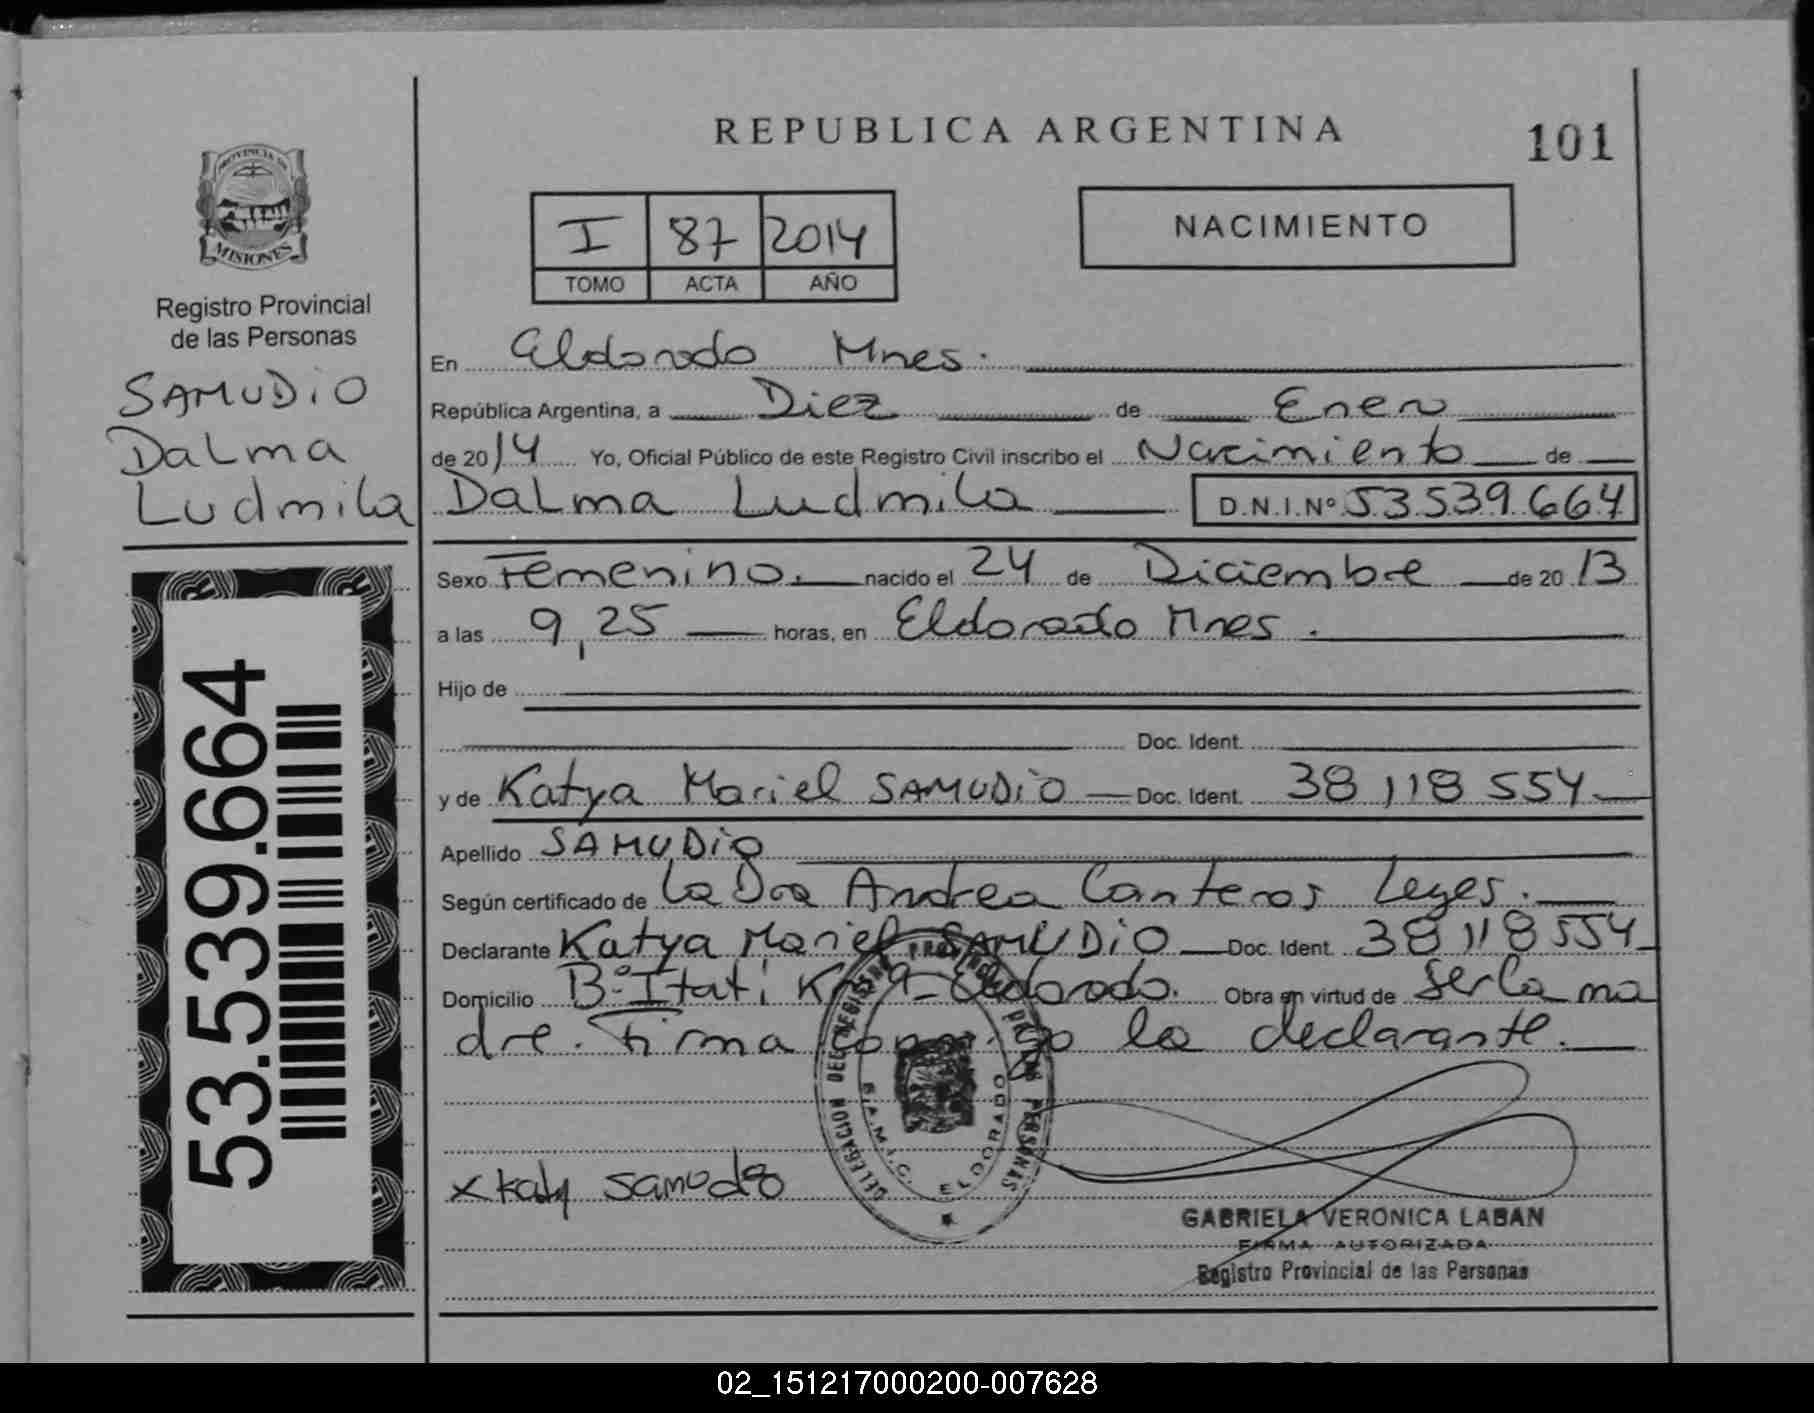 REPUBLICA ARGENTINA
101
PROVINCIA DE
MISIONES
Registro Provincial
de las Personas
SAMUDiO
DaLma
Ludmila
I 87 2014
TOMO ACTA AÑO
NACIMIENTO
En Eldorado Mnes.
República Argentina, a Diez de Enero
de 2014 Yo, Oficial Público de este Registro Civil inscribo el Nacimiento de
DaLma Ludmila D.N.I.Nº 53.539.664
Sexo Femenino. nacido el 24 de Diciembre de 2013
a las 9,25 horas, en Eldorado Mnes.
Hijo de
Doc. Ident.
y de Katya Mariel SAMUDiO Doc. Ident. 38 118 554
Apellido SAMUDiO
Según certificado de La Dra Andrea Canteros Leyes.
Declarante Katya Mariel SAMUDiO Doc. Ident. 38 118 554
Domicilio Bº Itatí Km 9 - Eldorado. Obra en virtud de ser la ma
dre. Firma conmigo la declarante.
53.539.664
DELEGACION DEL REGISTRO PROVINCIAL DE LAS PERSONAS
ELDORADO
x katy samudio
GABRIELA VERONICA LABAN
FIRMA AUTORIZADA
Registro Provincial de las Personas
02_151217000200-007628